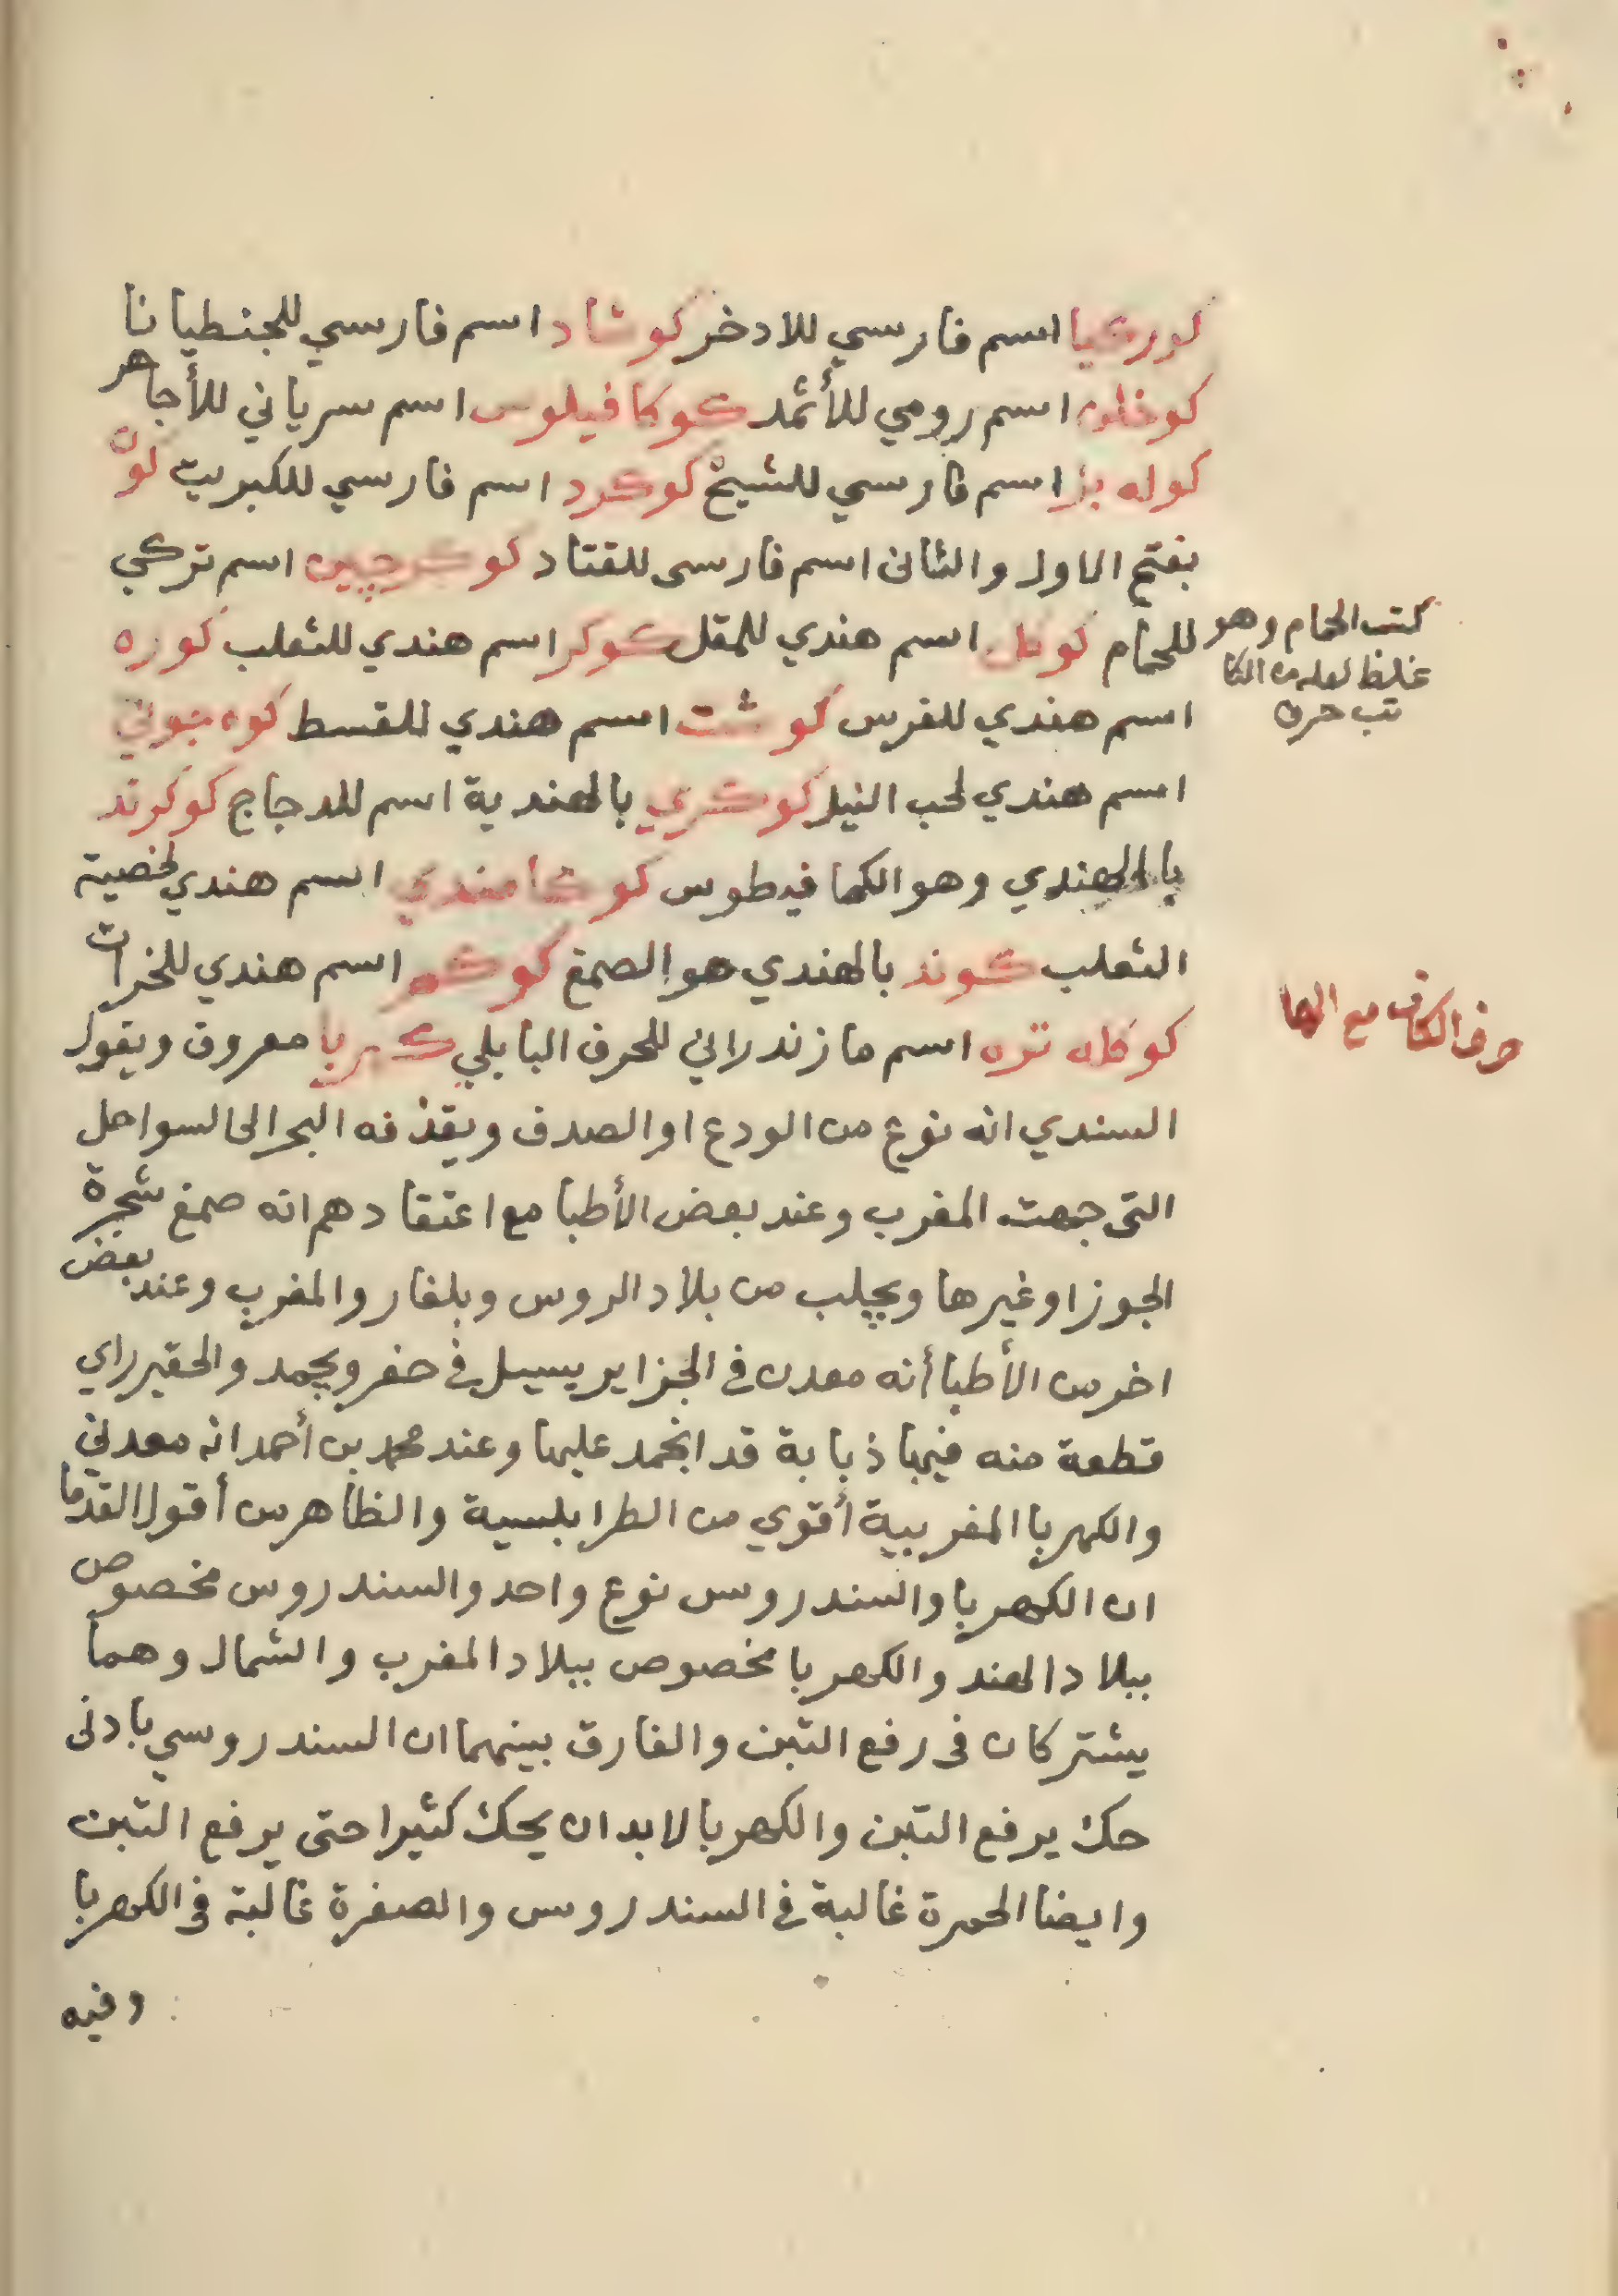 كوركيا اسم فارسي للادخر كوشاد اسم فارسي للجنطيانا
كوخلون اسم رومي للأثمد كوكافيلوس اسم سرياني للأجاهر
كوله بر اسم فارسي للشيح كوكرد اسم فارسي للكبريت كون
بفتح الاول والثانى اسم فارسى للقتاد كوكرجين اسم تركي
للحمام كوكل اسم هندي للمقل كوكر اسم هندي للثعلب كوره
كتب الحمام وهو
غليظ لعله من الكا
تب حرف
اسم هندي للفرس كوشت اسم هندي للقسط كوه
اسم هندي لحب النيل كوكري بالهندية اسم للدجاج كوكرند
بالهندي وهو الكما فيطوس اسم هندي لخصية
الثعلب كوند بالهندي هو الصمغ اسم هندي للخراث
كوكله تره اسم مازندراني للحرف البابلي كهربا معروف ويقول
حرف الكاف مع الها
السندي انه نوع من الودع او الصدف ويقذفه البحر الى السواحل
التى جهت المغرب وعند بعض الأطبا مع اعتقادهم انه صمغ شجرة
الجوز او غيرها ويجلب من بلاد الروس وبلغار والمغرب وعند بعض
اخر من الأطبا أنه معدن في الجزاير يسيل في حفر ويجمد والحقير راي
قطعة منه فيها ذبابة قد انجمد عليها وعند محمد بن أحمد انه معدني
والكهربا المغربية أقوي من الطرابلسية والظاهر من أقول القدما
ان الكهربا والسندروس نوع واحد والسندروس مخصوص
ببلاد الهند والكهربا مخصوص ببلاد المغرب والشمال وهما
يشتركان فى رفع التبن والفارق بينهما ان السندروسي بادنى
حك يرفع التبن والكهربا لابد ان يحك كثيرا حتى يرفع التبن
وايضا الحمرة غالبة في السندروس والصفرة غالبة فى الكهربا
وفيه